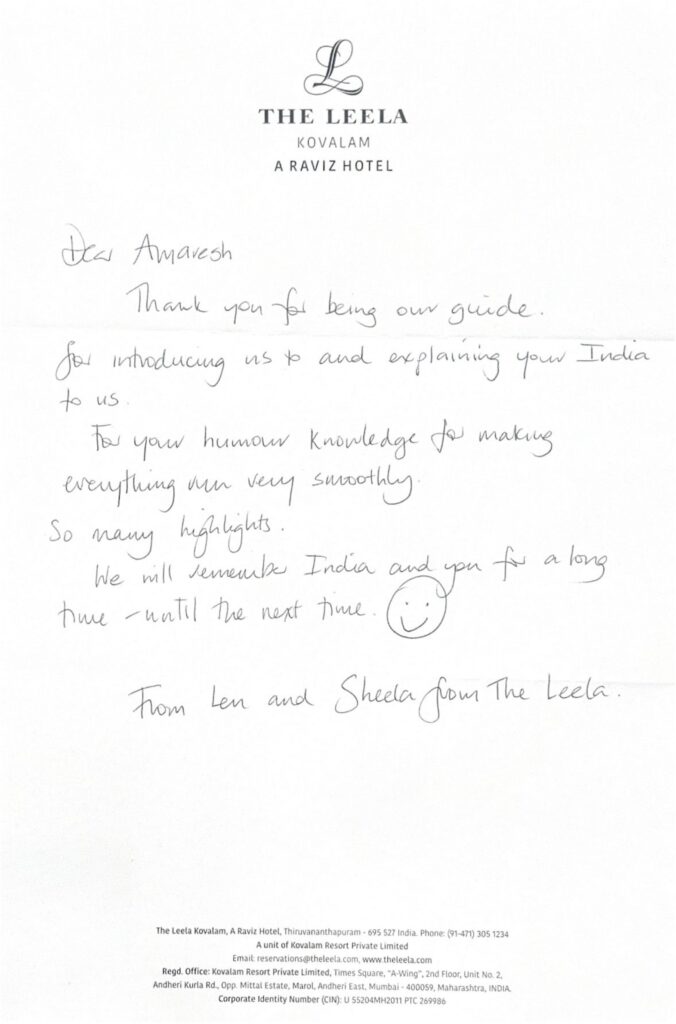 THE LEELA
KOVALAM
A RAVIZ HOTEL
Dear Amaresh
Thank you for being our guide.
for introducing us to and explaining your India
to us.
For your humour knowledge for making
everything run very smoothly.
So many highlights.
We will remember India and you for a long
time – until the next time.
From Len and Sheela from The Leela.
The Leela Kovalam, A Raviz Hotel, Thiruvananthapuram - 695 527 India. Phone: (91-471) 305 1234
A unit of Kovalam Resort Private Limited
Email: reservations@theleela.com, www.theleela.com
Regd. Office: Kovalam Resort Private Limited, Times Square, "A-Wing", 2nd Floor, Unit No. 2,
Andheri Kurla Rd., Opp. Mittal Estate, Marol, Andheri East, Mumbai - 400059, Maharashtra, INDIA.
Corporate Identity Number (CIN): U 55204MH2011 PTC 269986